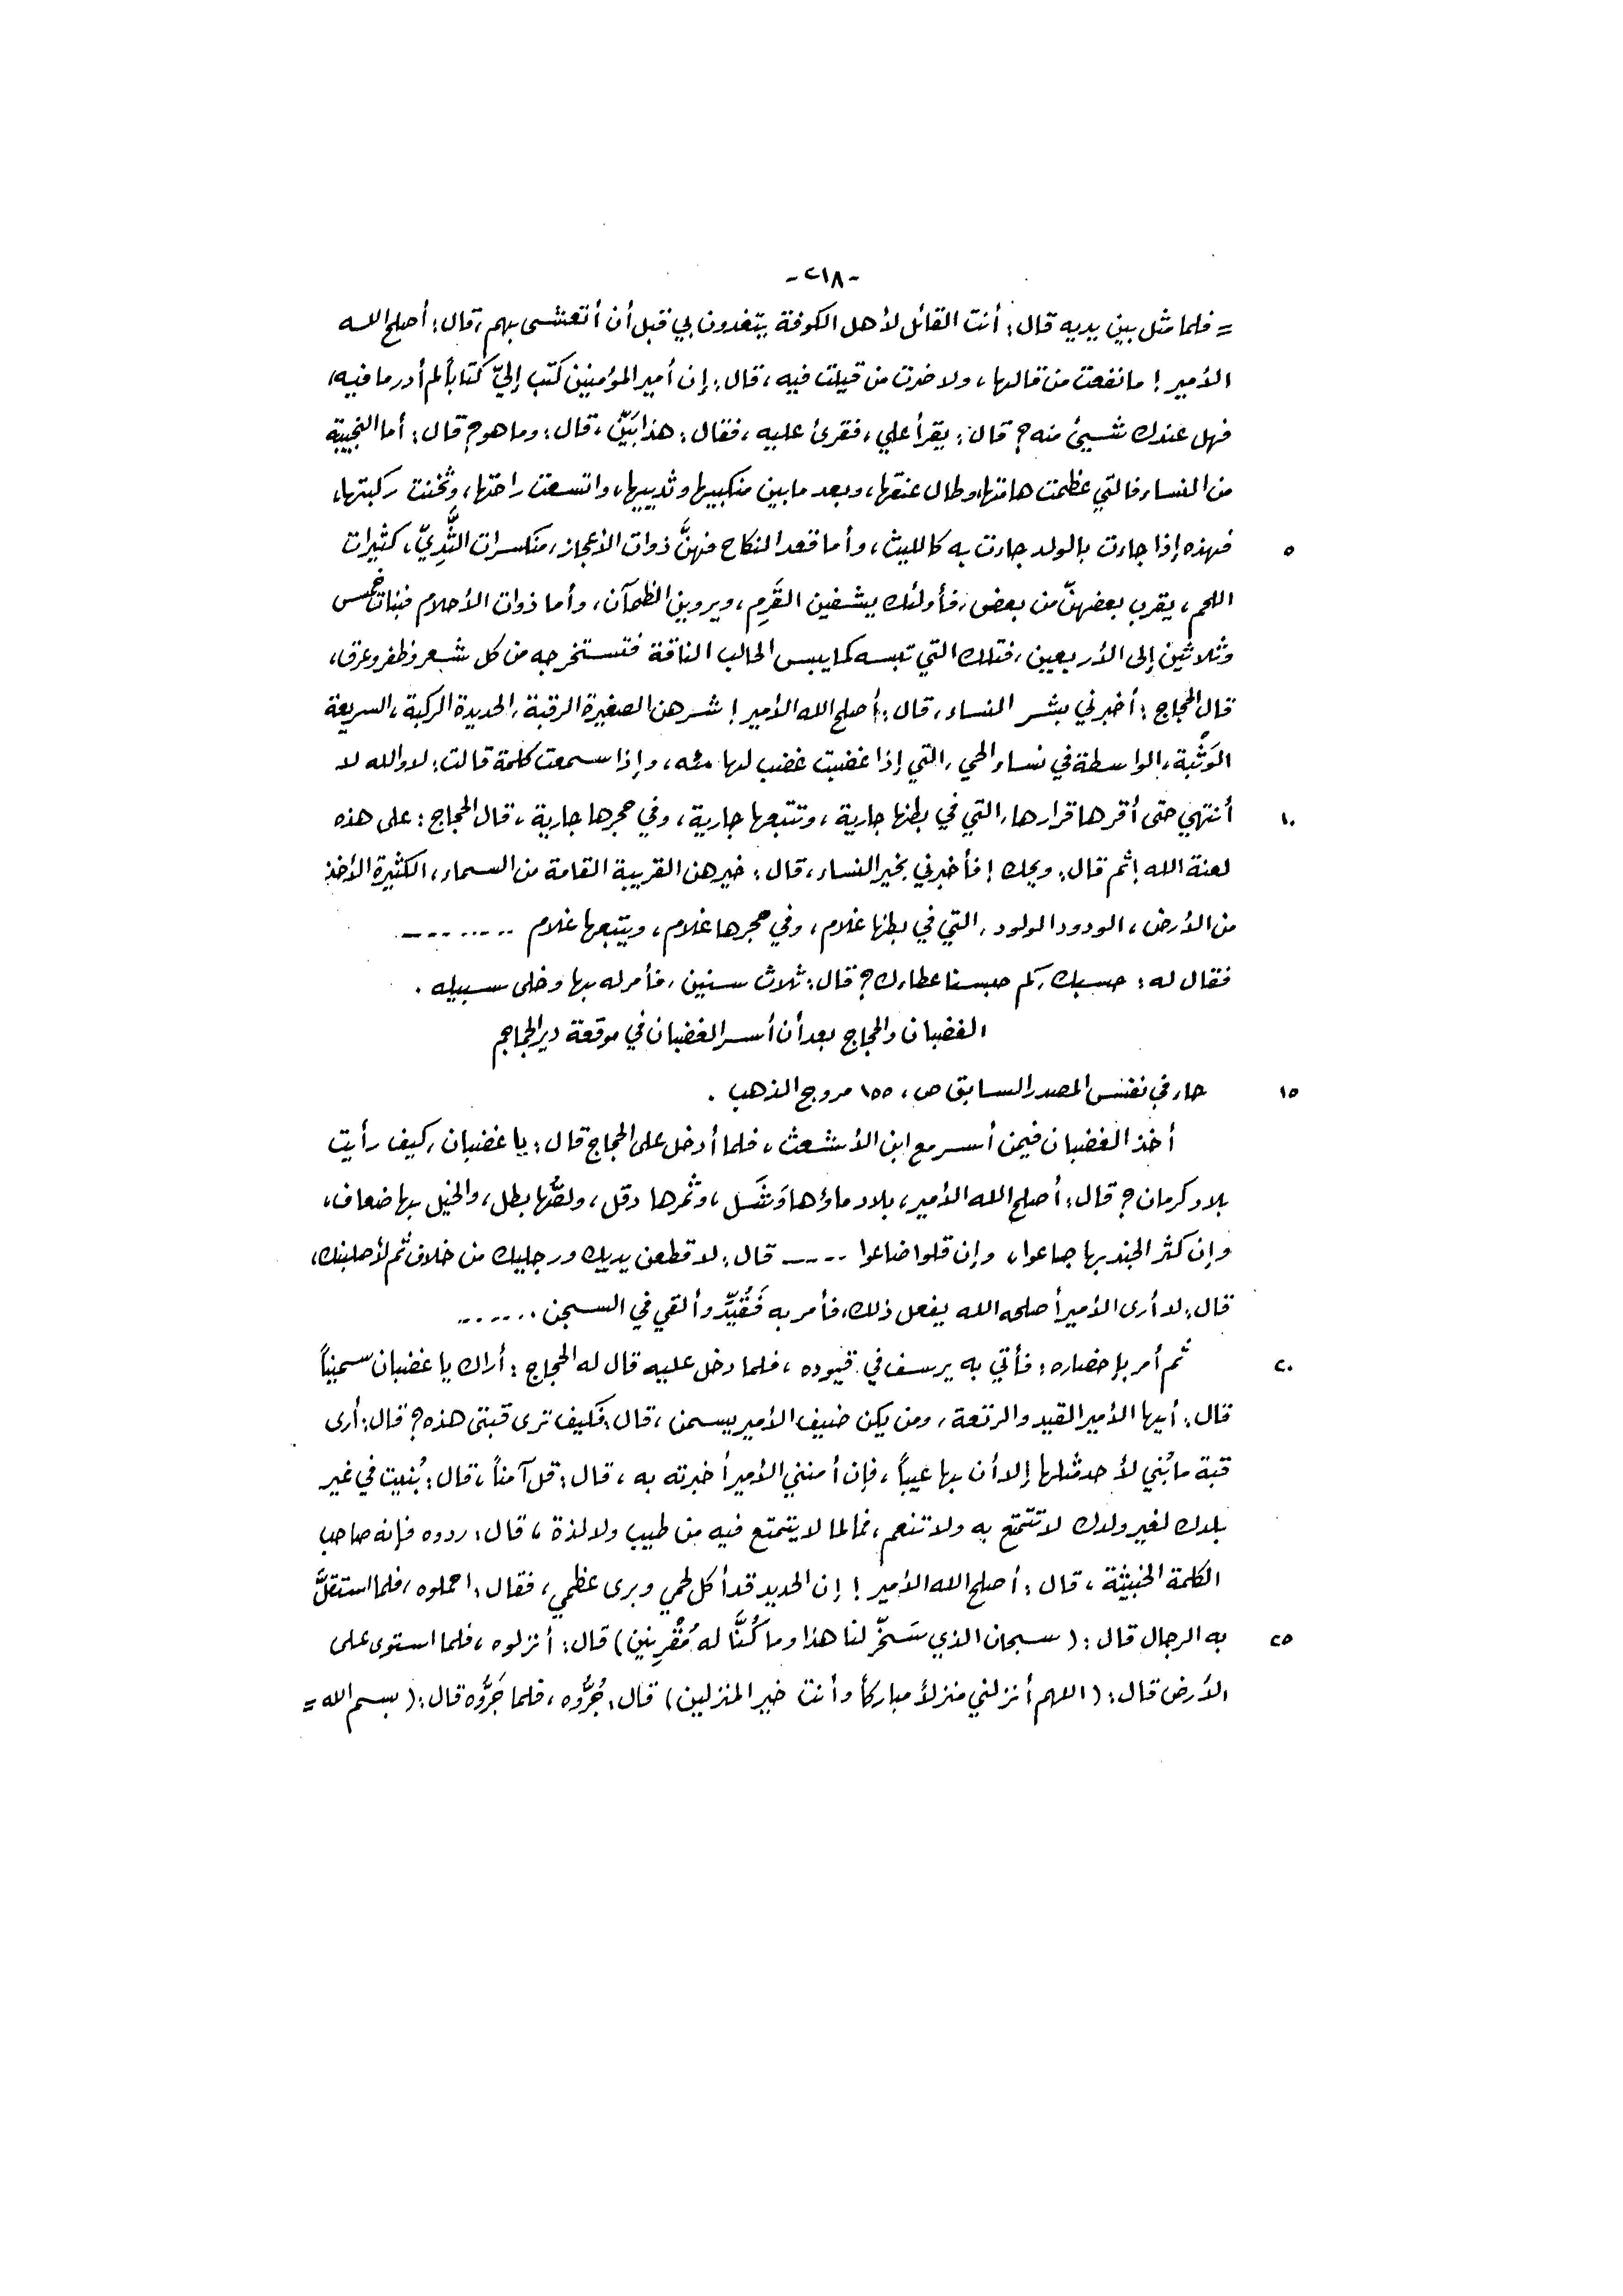 -٢١٨-
= فلما مثل بين يديه قال: أنت القائل لأهل الكوفة يتغدون بي قبل أن أتعشى بهم، قال: أصلح الله
الأمير! ما نفعت من قالها، ولا ضرت من قيلت فيه، قال: إن أمير المؤمنين كتب إليّ كتاباً لم أدر ما فيه،
فهل عندك شيئ منه؟ قال: يقرأ علي، فقرئ عليه، فقال: هذا بَيِّن، قال: وما هو؟ قال: أما النجيبة
من النساء فالتي عظمت هامتها، وطال عنقها، وبعد ما بين منكبيها وثدييها، واتسعت راحتها، وثخنت ركبتها،
٥ فهذه إذا جاءت بالولد جاءت به كالليث، وأما قعد النكاح فهنَّ ذوات الأعجاز، منكسرات الثَّدِيّ، كثيرات
اللحم، يقرب بعضهنّ من بعض، فأولئك يشفين القَرِم، ويروين الظمآن، وأما ذوات الأحلام فبنات خمس
وثلاثين إلى الأربعين، فتلك التي تبسه كما يبس الحالب الناقة فتستخرجه من كل شعر وظفر وعرق،
قال الحجاج: أخبرني بشر النساء، قال: أصلح الله الأمير! شرهن الصغيرة الرقبة، الحديدة الركبة، السريعة
الوَثْبة، الواسطة في نساء الحي، التي إذا غضبت غضب لها مئه، وإذا سمعت كلمة قالت: لا والله لا
١٠ أنتهي حتى أقرها قرارها، التي في بطنها جارية، وتتبعها جارية، وفي حجرها جارية، قال الحجاج: على هذه
لعنة الله! ثم قال: ويحك! فأخبرني بخير النساء، قال: خيرهن القريبة القامة من السماء، الكثيرة الأخذ
من الأرض، الودود الولود، التي في بطنها غلام، وفي حجرها غلام، ويتبعها غلام ........
فقال له: حسبك، كم حبسنا عطاءك؟ قال: ثلاث سنين، فأمر له بها وخلى سبيله.
الغضبان والحجاج بعد أن أسر الغضبان في موقعة دير الجماجم
١٥ جاء في نفس المصدر السابق ص، ١٥٥ مروج الذهب.
أخذ الغضبان فيمن أسر مع ابن الأشعث، فلما أدخل على الحجاج قال: يا غضبان، كيف رأيت
بلاد كرمان؟ قال: أصلح الله الأمير، بلاد ماؤها وَشَل، وثمرها دقل، ولصُّها بطل، والخيل بها ضعاف،
وإن كثر الجند بها جاعوا، وإن قلوا ضاعوا ..... قال: لاقطعن يديك ورجليك من خلاف ثم لأصلبنك،
قال: لا أرى الأمير أصلحه الله يفعل ذلك، فأمر به فَقُيِّدَ وألقي في السجن.......
٢٠ ثم أمر بإحضاره: فأتي به يرسف في قيوده، فلما دخل عليه قال له الحجاج: أراك يا غضبان سميناً
قال: أيها الأمير القيد والرتعة، ومن يكن ضيف الأمير يسمن، قال: فكيف ترى قبتي هذه؟ قال: أرى
قبة ما بُني لأحد مثلها إلا أن بها عيباً، فإن أمنني الأمير أخبرته به، قال: قل آمناً، قال: بُنيت في غير
بلدك لغير ولدك لا تتمتع به ولا تنعم، فما لما لا يتمتع فيه من طيب ولا لذة، قال: ردوه فإنه صاحب
الكلمة الخبيثة، قال: أصلح الله الأمير! إن الحديد قد أكل لحمي وبرى عظمي، فقال: احملوه، فلما استقلَّ
٢٥ به الرجال قال: (سبحان الذي سَخّر لنا هذا وما كُنَّا له مُقْرِنين) قال: أنزلوه، فلما استوى على
الأرض قال: (اللهم أنزلني منزلاً مباركاً وأنت خير المنزلين) قال: جُرُّوه، فلما جَرُّوه قال: (بسم الله =